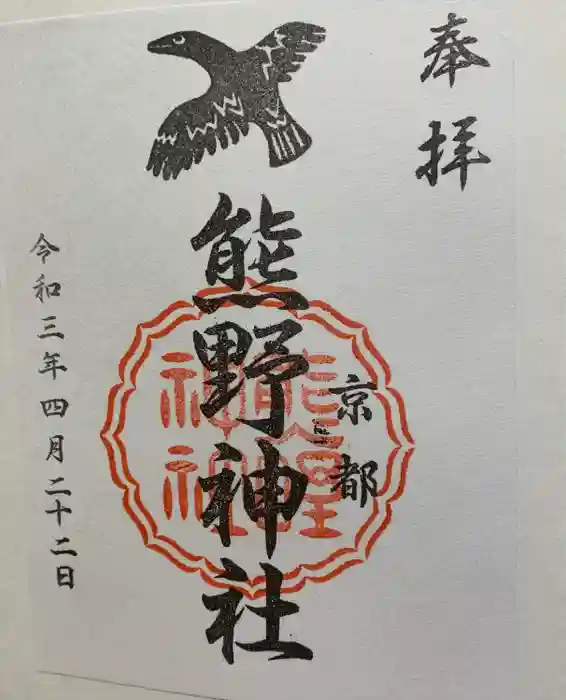 奉拝
京都
熊野神社
熊野
神社
令和三年四月二十二日